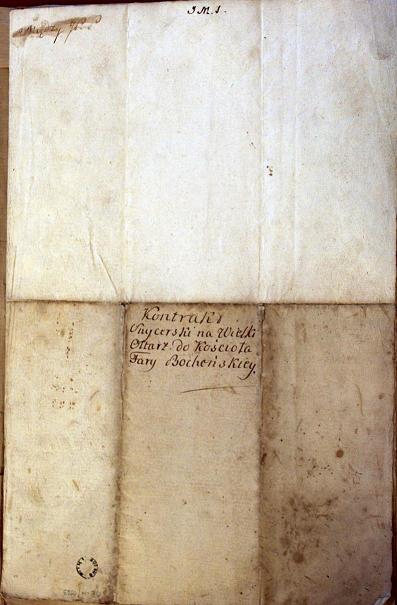 J.M.J.
Kontrakt
Snycerski na Wielki
Ołtarz do Kościoła
Fary Bocheńskiey.